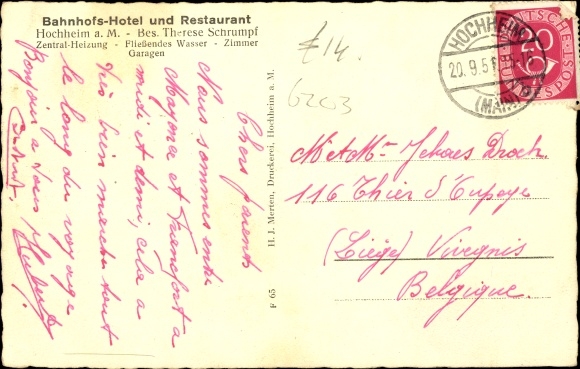 Bahnhofs-Hotel und Restaurant
Hochheim a. M. - Bes. Therese Schrumpf
Zentral-Heizung - Fließendes Wasser - Zimmer
Garagen
£14.
6203
HOCHHEIM
20.9.5
(MAIN)
DEUTSCHE
BUNDESPOST
20
Chers parents
Nous sommes entre
Mayence et Francfort a
midi et demi, cela a
très bien marché tout
le long du voyage
Bonjour a tous Hubert
H. J. Merten, Druckerei, Hochheim a. M.
F 65
M et Mme
116 Thier d'Oupeye
(Liège) Vivegnis
Belgique.